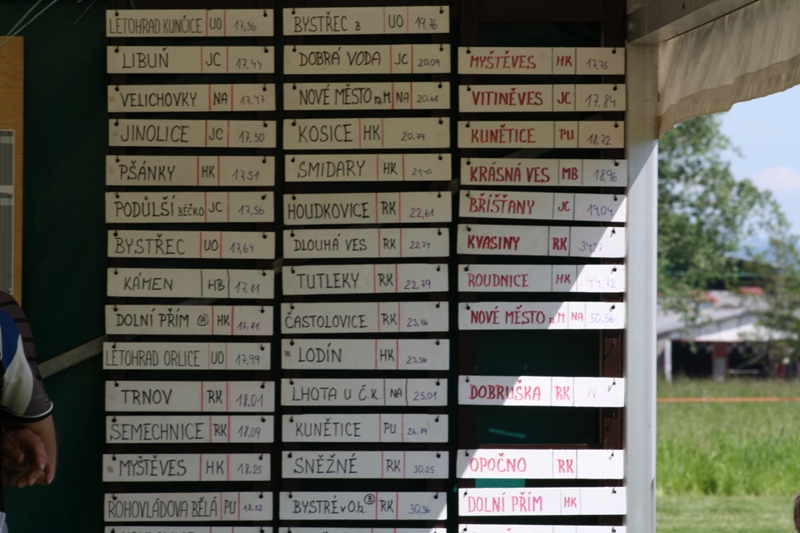 LETOHRAD KUNČICE UO 17,36
LIBUŇ JC 17,44
VELICHOVKY NA 17,47
JINOLICE JC 17,50
PŠÁNKY HK 17,51
PODŮLŠÍ BÉČKO JC 17,56
BYSTŘEC UO 17,64
KÁMEN HB
DOLNÍ PŘÍM HK
LETOHRAD ORLICE UO 17,99
TRNOV RK 18,01
SEMECHNICE RK 18,09
MYŠTĚVES HK 18,25
ROHOVLÁDOVA BĚLÁ PU
BYSTŘEC B UO 19,76
DOBRÁ VODA JC 20,09
NOVÉ MĚSTO n.M. NA
KOSICE HK 20,79
SMIDARY HK 21,40
HOUDKOVICE RK 22,61
DLOUHÁ VES RK 22,74
TUTLEKY RK 22,79
ČASTOLOVICE RK 23,16
LODÍN HK 23,36
LHOTA U Č.K. NA 25,01
KUNĚTICE PU
SNĚŽNÉ RK 30,25
BYSTRÉ v O.h. B RK 30,36
MYŠTĚVES HK 17,73
VITINĚVES JC 17,84
KUNĚTICE PU 18,72
KRÁSNÁ VES MB 18,96
BŘÍŠŤANY JC 19,04
KVASINY RK
ROUDNICE HK 44,72
NOVÉ MĚSTO n.M. NA 50,56
DOBRUŠKA RK N
OPOČNO RK
DOLNÍ PŘÍM HK